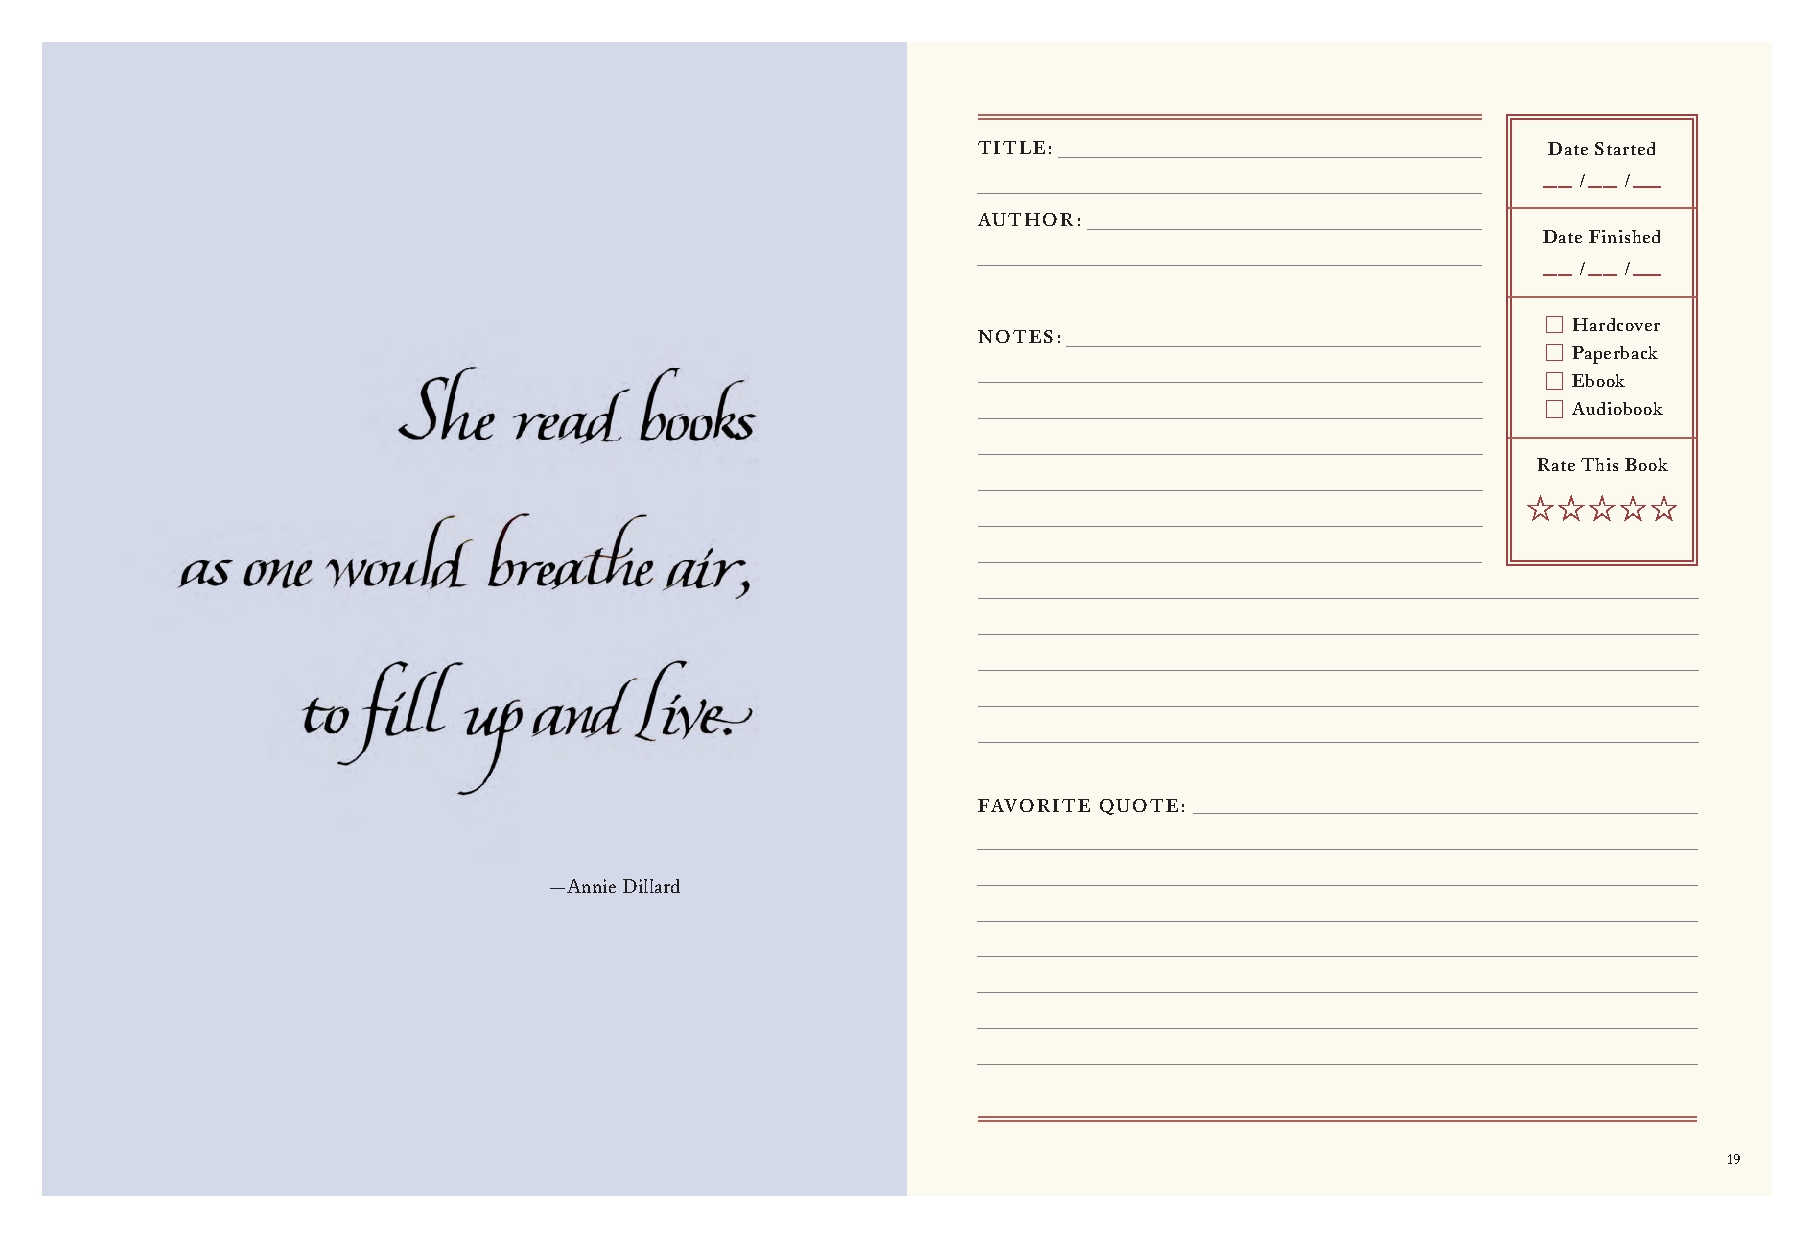 She read books
as one would breathe air,
to fill up and live.
—Annie Dillard
TITLE:
AUTHOR:
NOTES:
Date Started
__ /__ /__
Date Finished
__ /__ /__
Hardcover
Paperback
Ebook
Audiobook
Rate This Book
FAVORITE QUOTE:
19